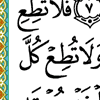 ٧ فَلَا تُطِعِ
وَلَا تُطِعۡ كُلَّ